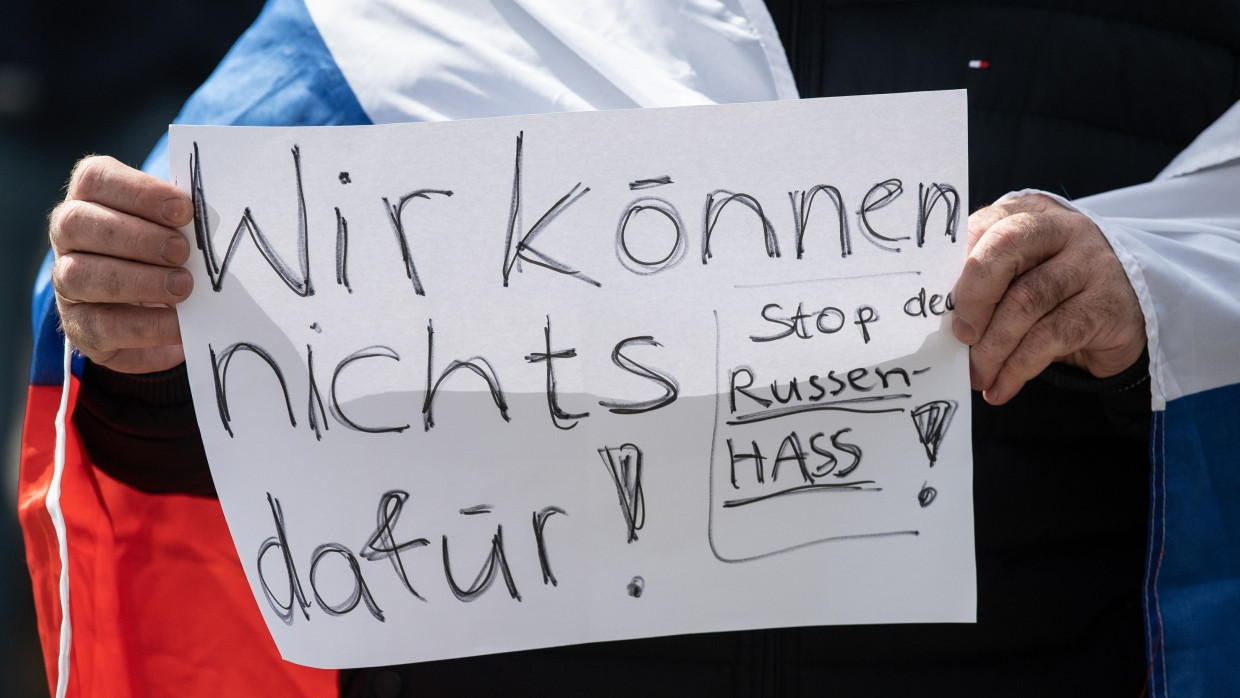 Wir können
nichts
dafür!
Stop
Russen-
HASS!